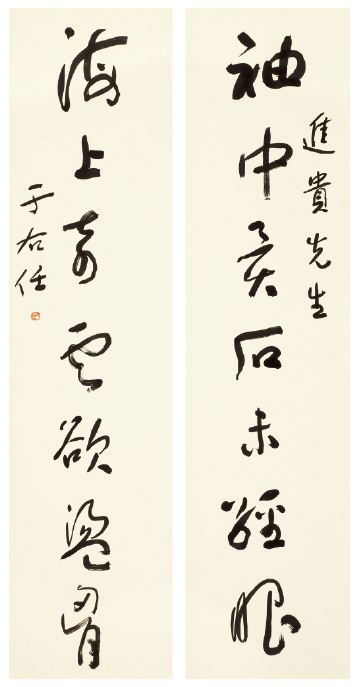 進貴先生
袖中異石未經眼
海上奇雲欲盪胷
于右任